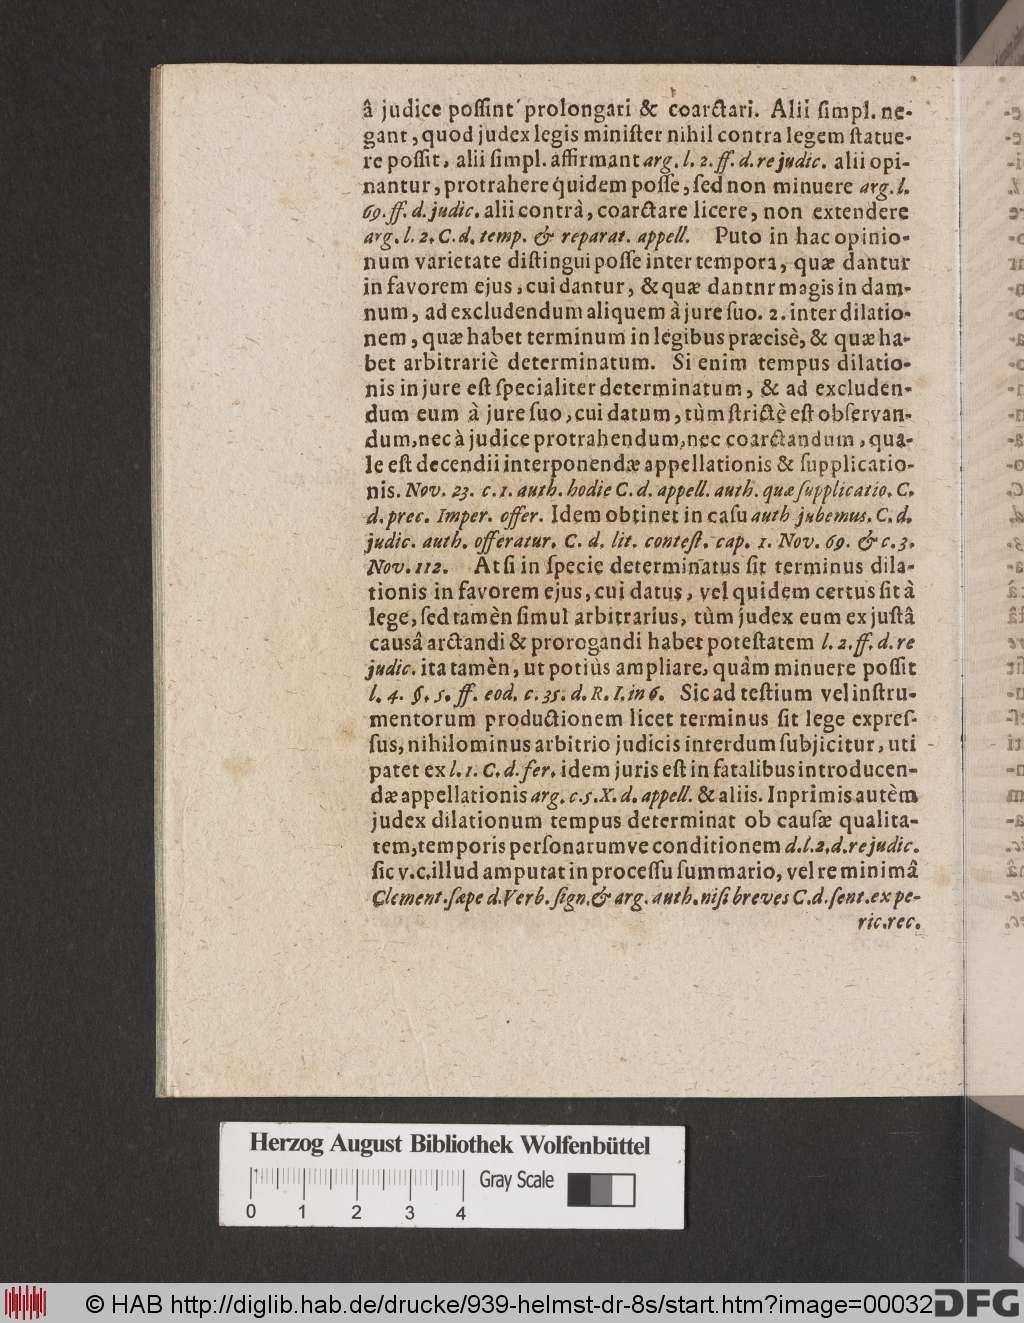 â judice poſſint prolongari & coarctari. Alii ſimpl. ne-
gant, quod judex legis miniſter nihil contra legem ſtatue-
re poſſit, alii ſimpl. affirmant arg. l. 2. ff. d. re judic. alii opi-
nantur, protrahere quidem poſſe, ſed non minuere arg. l.
69. ff. d. judic. alii contrà, coarctare licere, non extendere
arg. l. 2. C. d. temp. & reparat. appell. Puto in hac opinio-
num varietate diſtingui poſſe inter tempora, quæ dantur
in favorem ejus, cui dantur, & quæ dantnr magis in dam-
num, ad excludendum aliquem à jure ſuo. 2. inter dilatio-
nem, quæ habet terminum in legibus præcisè, & quæ ha-
bet arbitrariè determinatum. Si enim tempus dilatio-
nis in jure eſt ſpecialiter determinatum, & ad excluden-
dum eum à jure ſuo, cui datum, tùm ſtrictè eſt obſervan-
dum, nec à judice protrahendum, nec coarctandum, qua-
le eſt decendii interponendæ appellationis & ſupplicatio-
nis. Nov. 23. c. 1. auth. hodie C. d. appell. auth. quæ ſupplicatio. C.
d. prec. Imper. offer. Idem obtinet in caſu auth jubemus. C. d.
judic. auth. offeratur. C. d. lit. conteſt. cap. 1. Nov. 69. & c. 3.
Nov. 112. At ſi in ſpecie determinatus ſit terminus dila-
tionis in favorem ejus, cui datus, vel quidem certus ſit à
lege, ſed tamèn ſimul arbitrarius, tùm judex eum ex juſtâ
causâ arctandi & prorogandi habet poteſtatem l. 2. ff. d. re
judic. ita tamèn, ut potiùs ampliare, quàm minuere poſſit
l. 4. §. 5. ff. eod. c. 35. d. R. I. in 6. Sic ad teſtium vel inſtru-
mentorum productionem licet terminus ſit lege expreſ-
ſus, nihilominus arbitrio judicis interdum ſubjicitur, uti
patet ex l. 1. C. d. fer. idem juris eſt in fatalibus introducen-
dæ appellationis arg. c. 5. X. d. appell. & aliis. Inprimis autèm
judex dilationum tempus determinat ob cauſæ qualita-
tem, temporis perſonarumve conditionem d. l. 2. d. re judic.
ſic v. c. illud amputat in proceſſu ſummario, vel re minimâ
Clement. ſæpe d. Verb. ſign. & arg. auth. niſi breves C. d. ſent. ex pe-
ric. rec.
Herzog August Bibliothek Wolfenbüttel
Gray Scale
0 1 2 3 4
© HAB http://diglib.hab.de/drucke/939-helmst-dr-8s/start.htm?image=00032
DFG